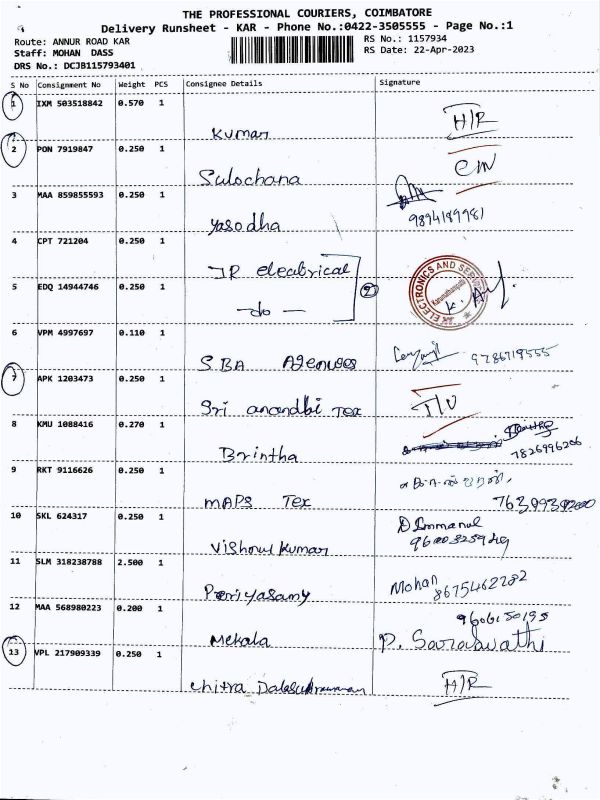 THE PROFESSIONAL COURIERS, COIMBATORE
Delivery Runsheet - KAR - Phone No.:0422-3505555 - Page No.:1
Route: ANNUR ROAD KAR
RS No.: 1157934
Staff: MOHAN DASS
RS Date: 22-Apr-2023
DRS No.: DCJB115793401
S No Consignment No Weight PCS Consignee Details Signature
1 IXM 503518842 0.570 1
Kumar H/R
2 PON 7919847 0.250 1
Sulochana
3 MAA 859855593 0.250 1
Yasodha 9894189981
4 CPT 721204 0.250 1
JP electrical
5 EDQ 14944746 0.250 1
-do- 2
ELECTRONICS AND
6 VPM 4997697 0.110 1
S.BA Agencies 9786719555
7 APK 1203473 0.250 1
Sri anandhi Tex
8 KMU 1088416 0.270 1
Brintha 7826996206
9 RKT 9116626 0.250 1
MAPS Tex
10 SKL 624317 0.250 1
D. Immanul
11 SLM 318238788 2.500 1
Periyasamy Mohan
8675462282
12 MAA 568980223 0.200 1
Mekala P. Saraswathi
13 VPL 217909339 0.250 1
Chitra H/R